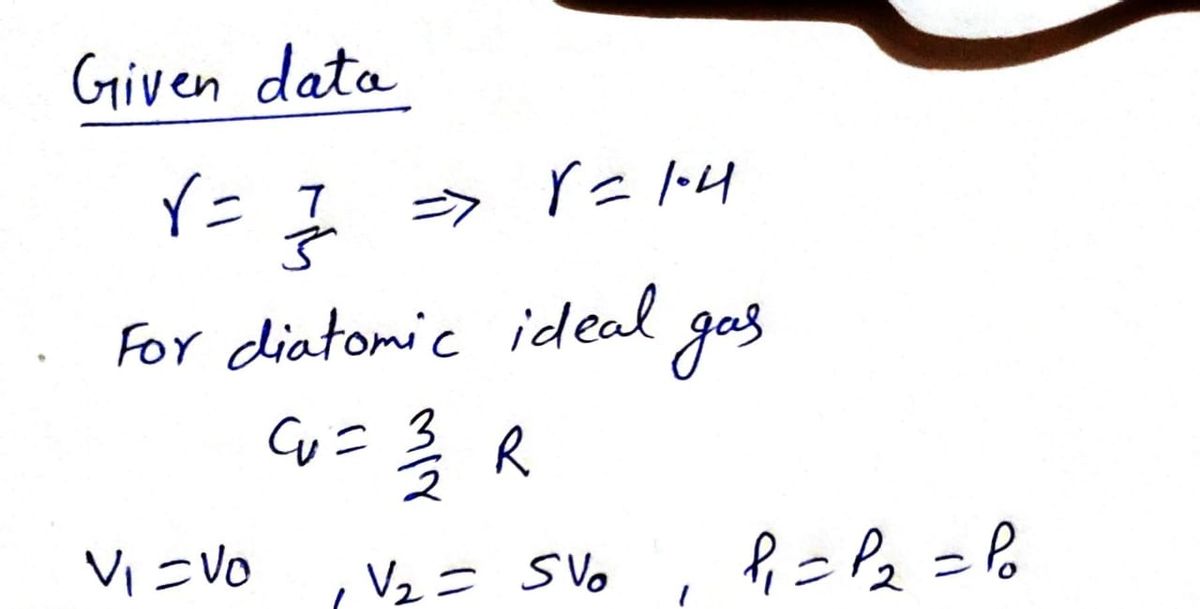 Given data
γ = 7/5 => γ = 1.4
For diatomic ideal gas
Cv = 3/2 R
V1 = V0 , V2 = 5V0 , P1 = P2 = P0